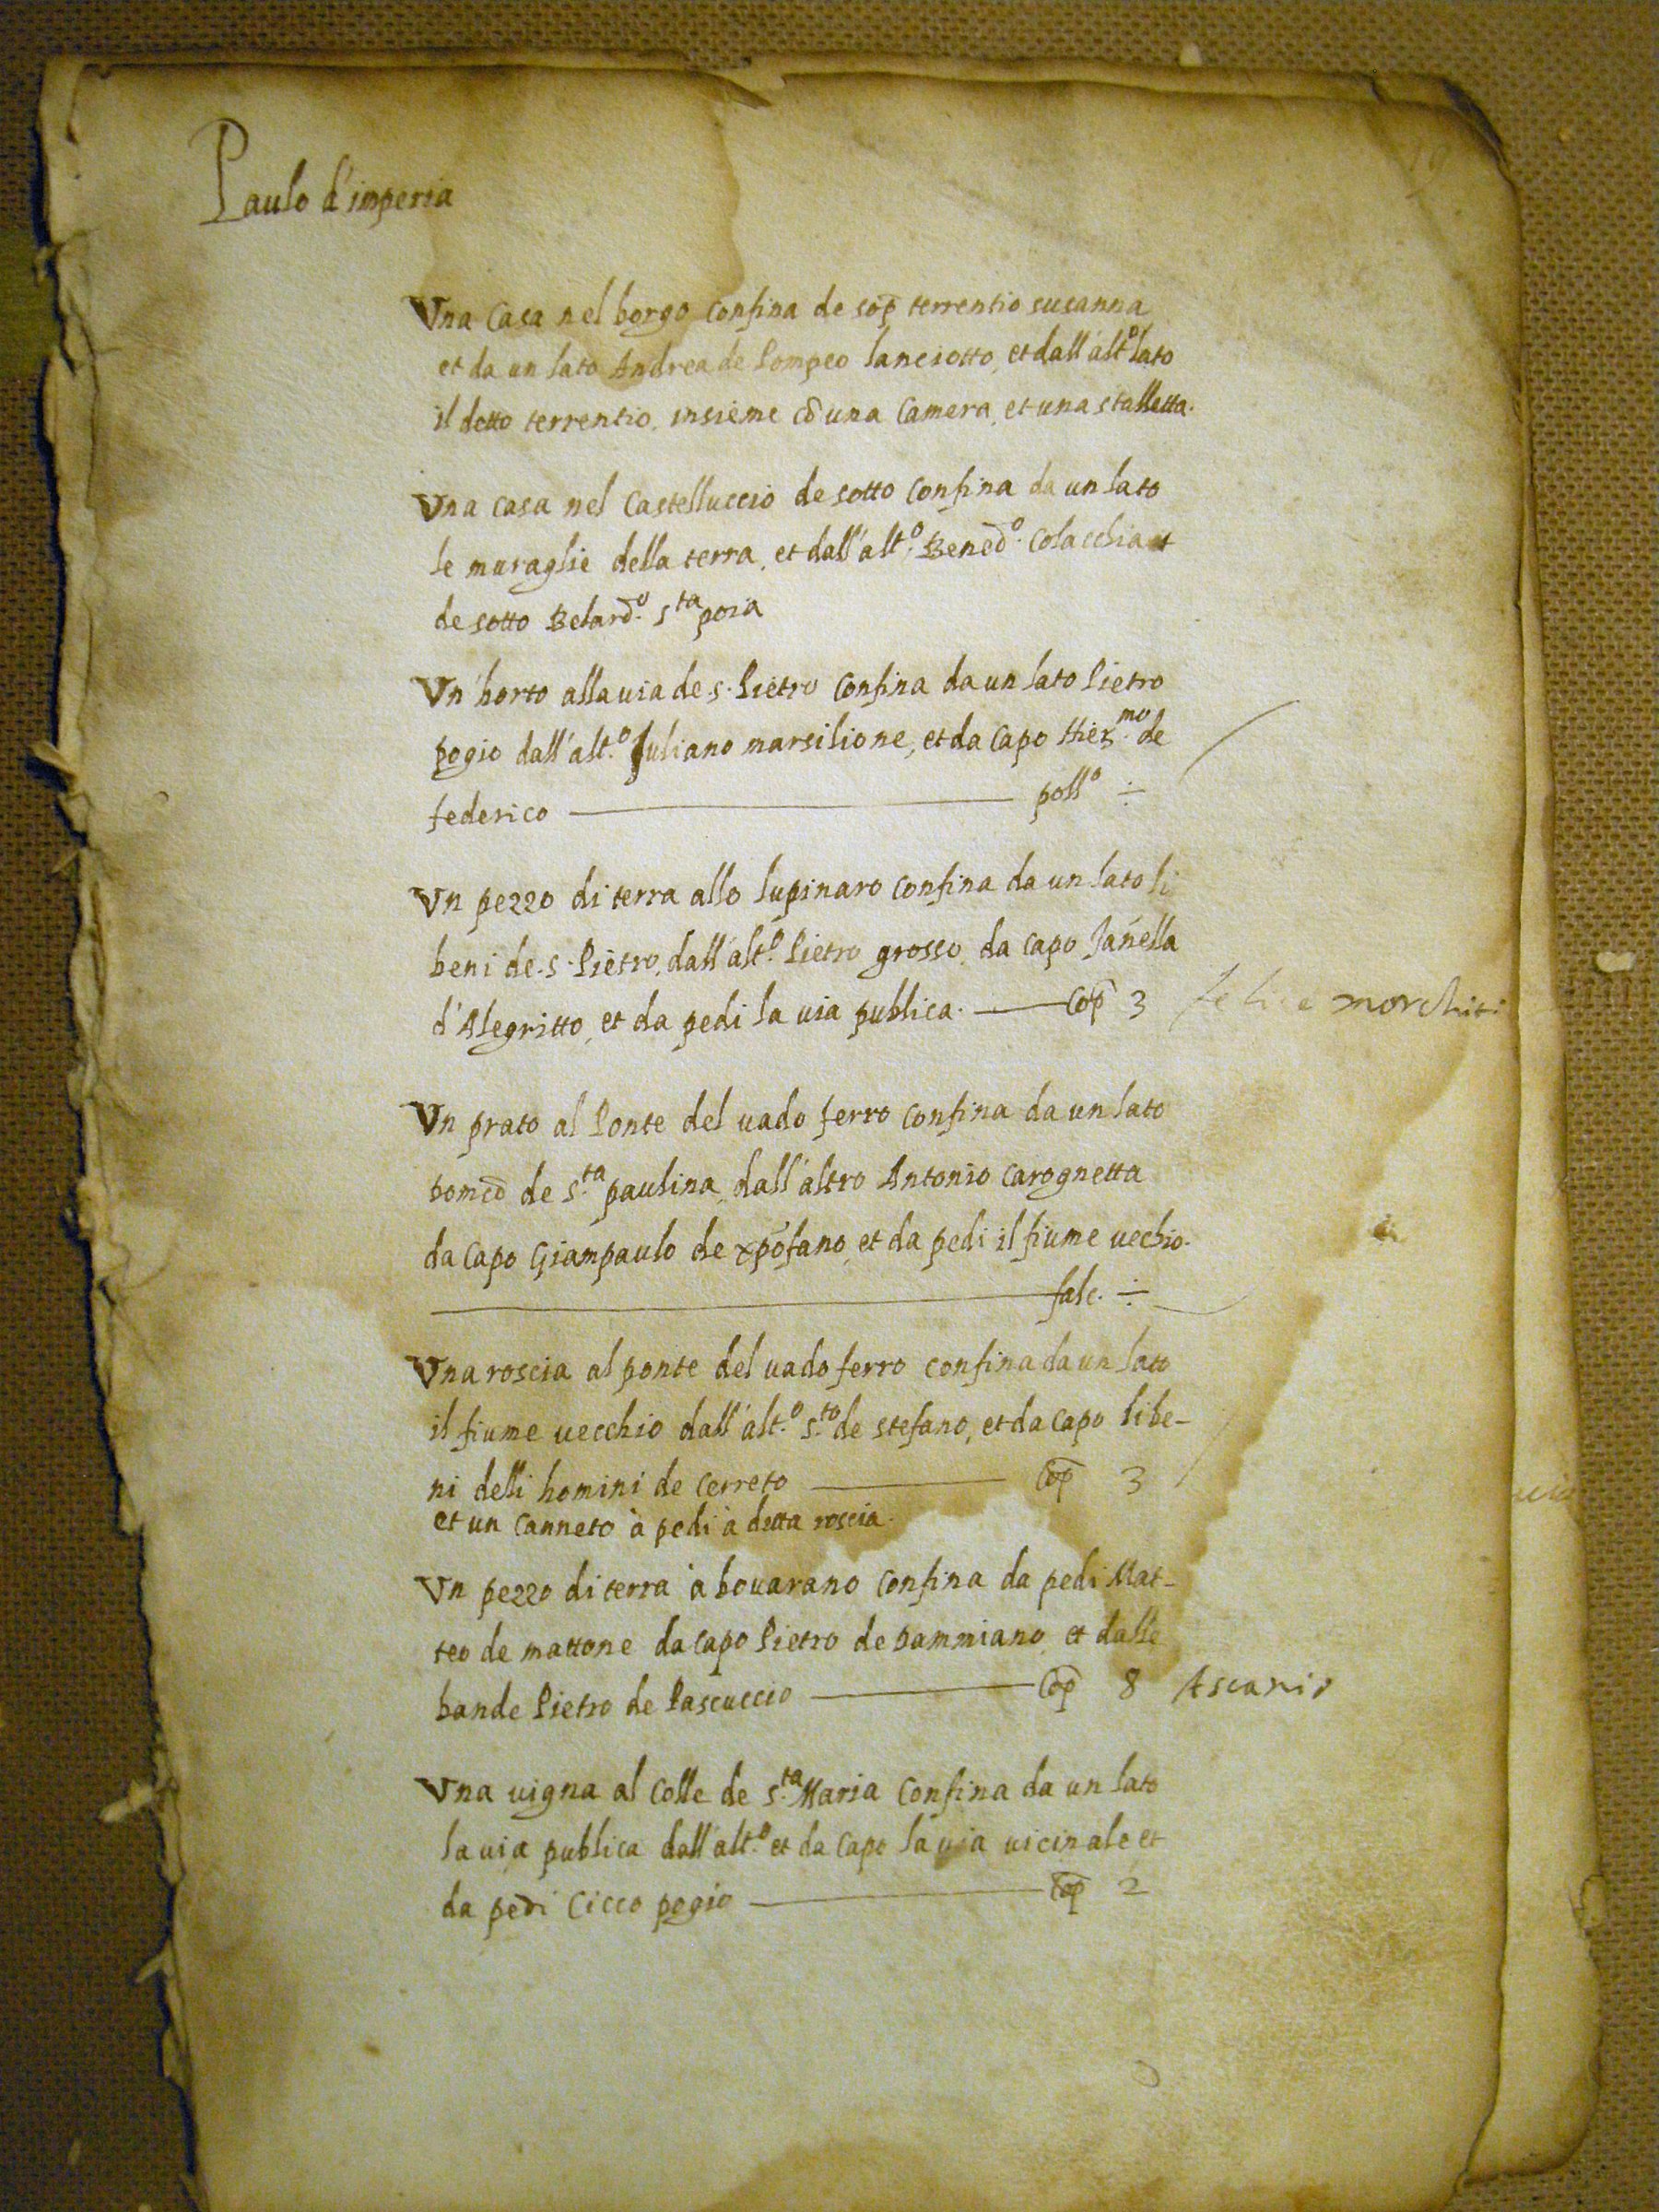 Paulo d'imperia
Vna Casa nel borgo confina de sop̄ terrentio susanna
et da un lato Andrea de Pompeo lanciotto, et dall'alt.º lato
il detto terrentio, insieme cō una Camera, et una stalletta.
Vna casa nel Castelluccio de sotto confina da un lato
le muraglie della terra, et dall'alt.º Bened.º Colacchia et
de sotto Belard.º s.ta poia
Vn horto alla uia de .s. Pietro confina da un lato Pietro
pogio dall'alt.º Juliano marsilione, et da capo Hier.mo de
federico poll.º ÷
Vn pezzo di terra allo lupinaro confina da un lato li
beni de .s. Pietro, dall'alt.º Pietro grosso, da capo Janella
d'Alegritto, et da pedi la uia publica. Cop̄ 3 felice morchiti
Vn prato al Ponte del uado ferro confina da un lato
Domc̄o de s.ta paulina, dall'altro Antonio carognetta
da capo Giampaulo de xp̄ofano, et da pedi il fiume uechio.
falc. ÷
Vna roscia al ponte del uado ferro confina da un lato
il fiume uecchio dall'alt.º s.to de stefano, et da capo li be-
ni delli homini de Cerreto Cop̄ 3
et un Canneto à pedi à detta roscia.
Vn pezzo di terra à bouarano confina da pedi Mat-
teo de mattone da capo Pietro de Dammiano et dalle
bande Pietro de Pascuccio Cop̄ 8 Ascanio
Vna uigna al Colle de s.ta Maria confina da un lato
la uia publica dall'alt.º et da capo la uia uicinale et
da pedi Cicco pogio Cop̄ 2